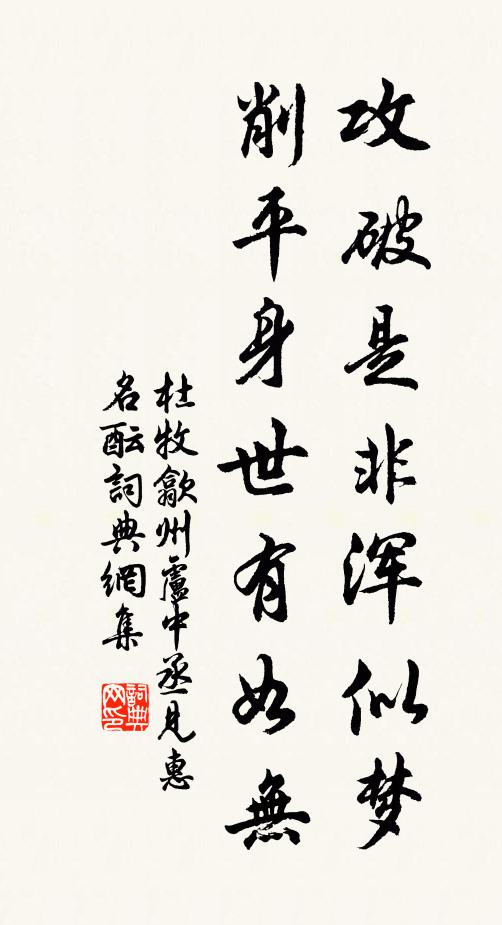 攻破是非浑似梦
削平身世有如無
杜牧歙州盧中丞見惠
名酝詞典網集
詞典網印